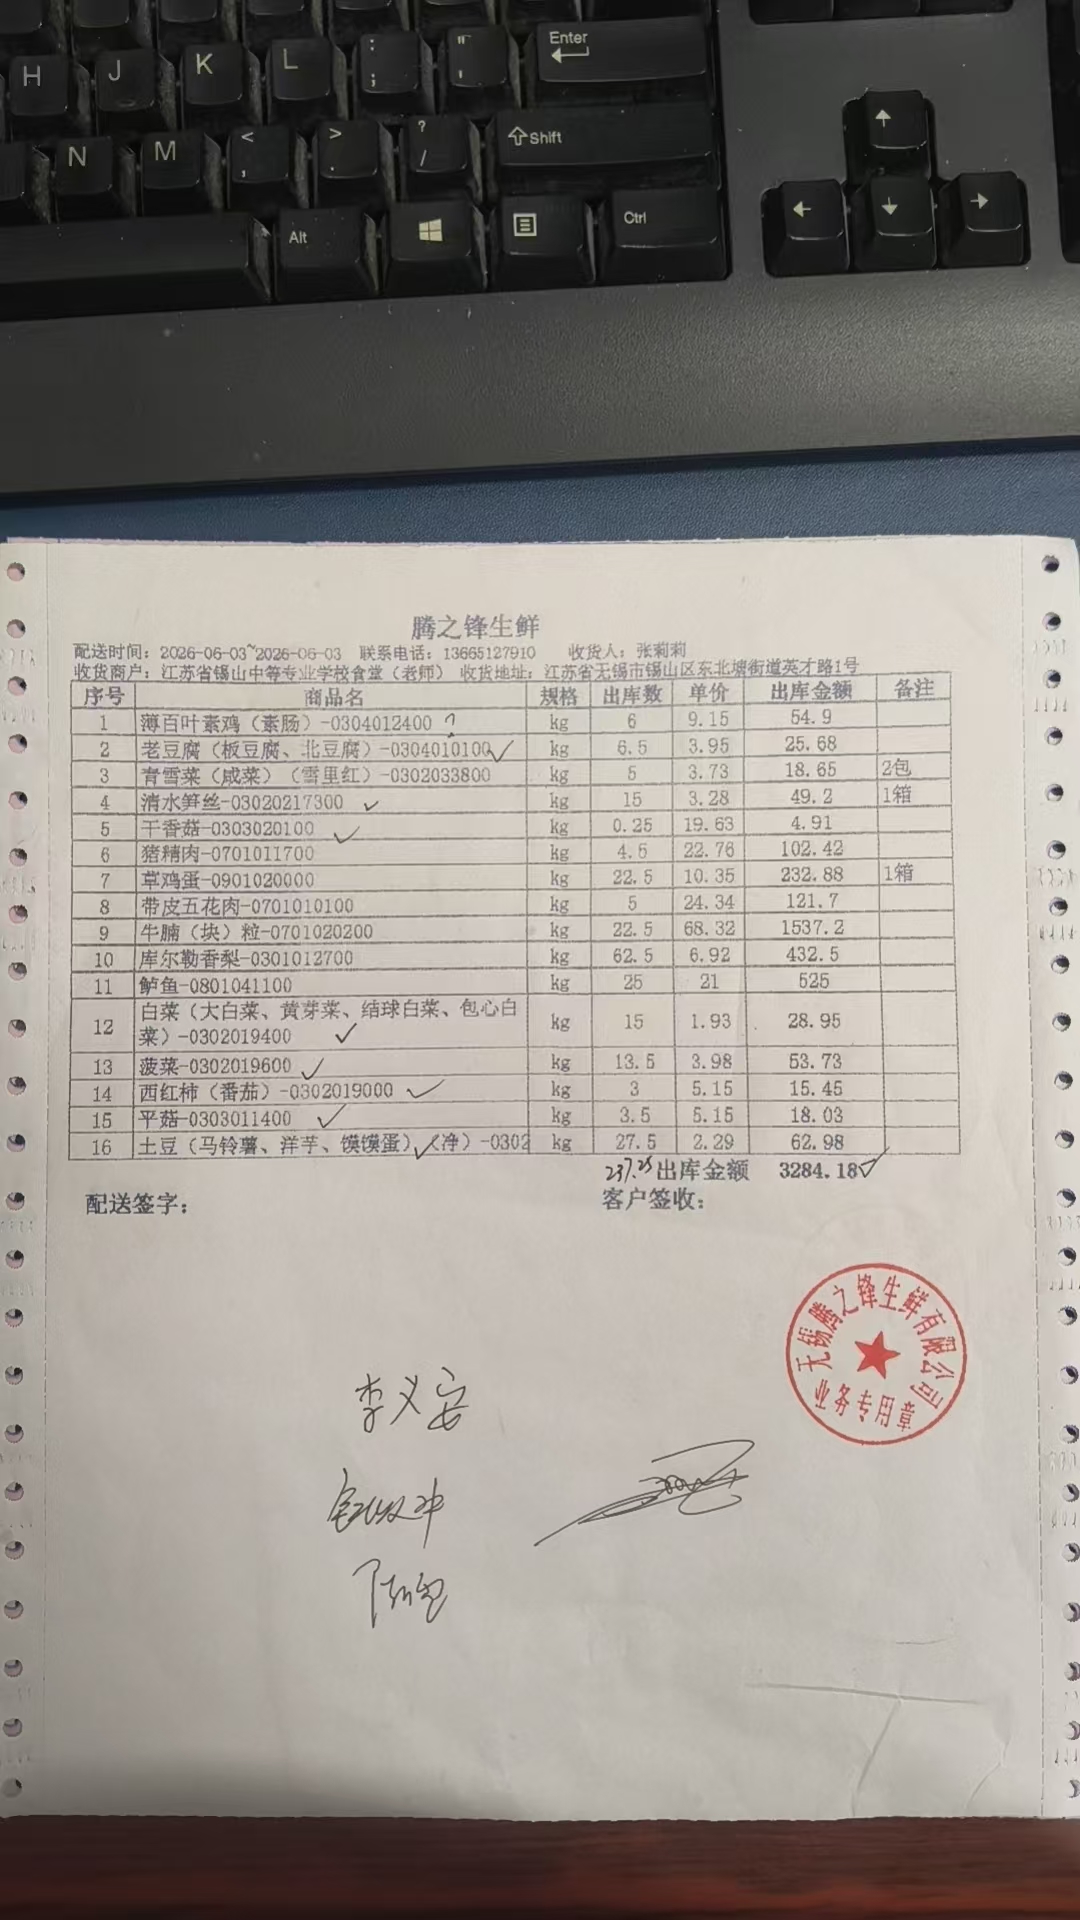 H J K L : ; " ' Enter
N M < , > . ? / Shift
Alt Ctrl
腾之锋生鲜
配送时间：2026-06-03~2026-06-03 联系电话：13665127910 收货人：张莉莉
收货商户：江苏省锡山中等专业学校食堂（老师） 收货地址：江苏省无锡市锡山区东北塘街道英才路1号
序号 商品名 规格 出库数 单价 出库金额 备注
1 薄百叶素鸡（素肠）-0304012400 ? kg 6 9.15 54.9
2 老豆腐（板豆腐、北豆腐）-0304010100 ✓ kg 6.5 3.95 25.68
3 青雪菜（咸菜）（雪里红）-0302033800 kg 5 3.73 18.65 2包
4 清水笋丝-03020217300 ✓ kg 15 3.28 49.2 1箱
5 干香菇-0303020100 ✓ kg 0.25 19.63 4.91
6 猪精肉-0701011700 kg 4.5 22.76 102.42
7 草鸡蛋-0901020000 kg 22.5 10.35 232.88 1箱
8 带皮五花肉-0701010100 kg 5 24.34 121.7
9 牛腩（块）粒-0701020200 kg 22.5 68.32 1537.2
10 库尔勒香梨-0301012700 kg 62.5 6.92 432.5
11 鲈鱼-0801041100 kg 25 21 525
12 白菜（大白菜、黄芽菜、结球白菜、包心白 kg 15 1.93 28.95
菜）-0302019400 ✓
13 菠菜-0302019600 ✓ kg 13.5 3.98 53.73
14 西红柿（番茄）-0302019000 ✓ kg 3 5.15 15.45
15 平菇-0303011400 ✓ kg 3.5 5.15 18.03
16 土豆（马铃薯、洋芋、馍馍蛋）✓（净）-0302 kg 27.5 2.29 62.98
237.25 出库金额 3284.18 ✓
配送签字： 客户签收：
无锡腾之锋生鲜有限公司
业务专用章
李义安